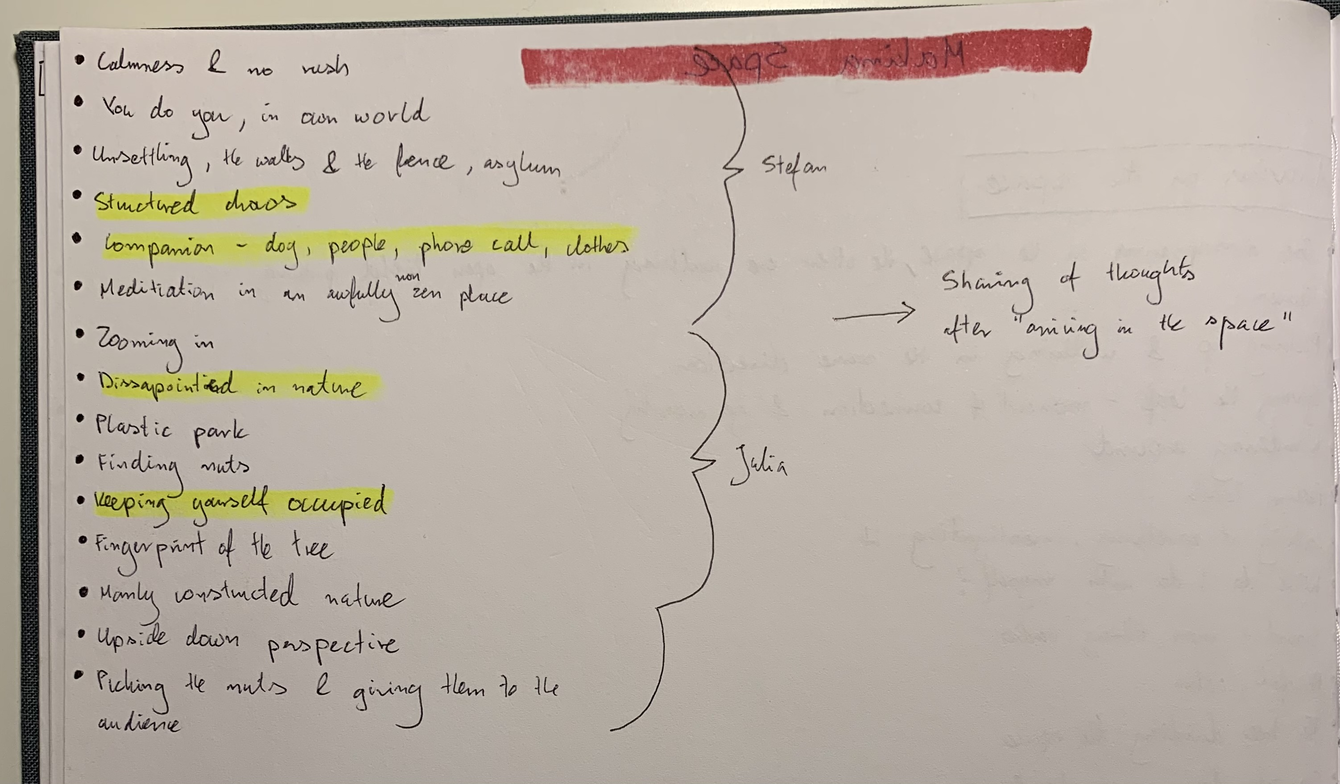 • Calmness & no rush
• You do you, in own world
• Unsettling, the walls & the fence, asylum
• Structured chaos
• Companion - dog, people, phone call, clothes
• Meditiation in an awfully non zen place
• Zooming in
• Dissapointed in nature
• Plastic park
• Finding nuts
• Keeping yourself occupied
• Fingerprint of the tree
• Manly constructed nature
• Upside down perspective
• Picking the nuts & giving them to the
audience
Stefan
Julia
→ Sharing of thoughts
after "arriving in the space"